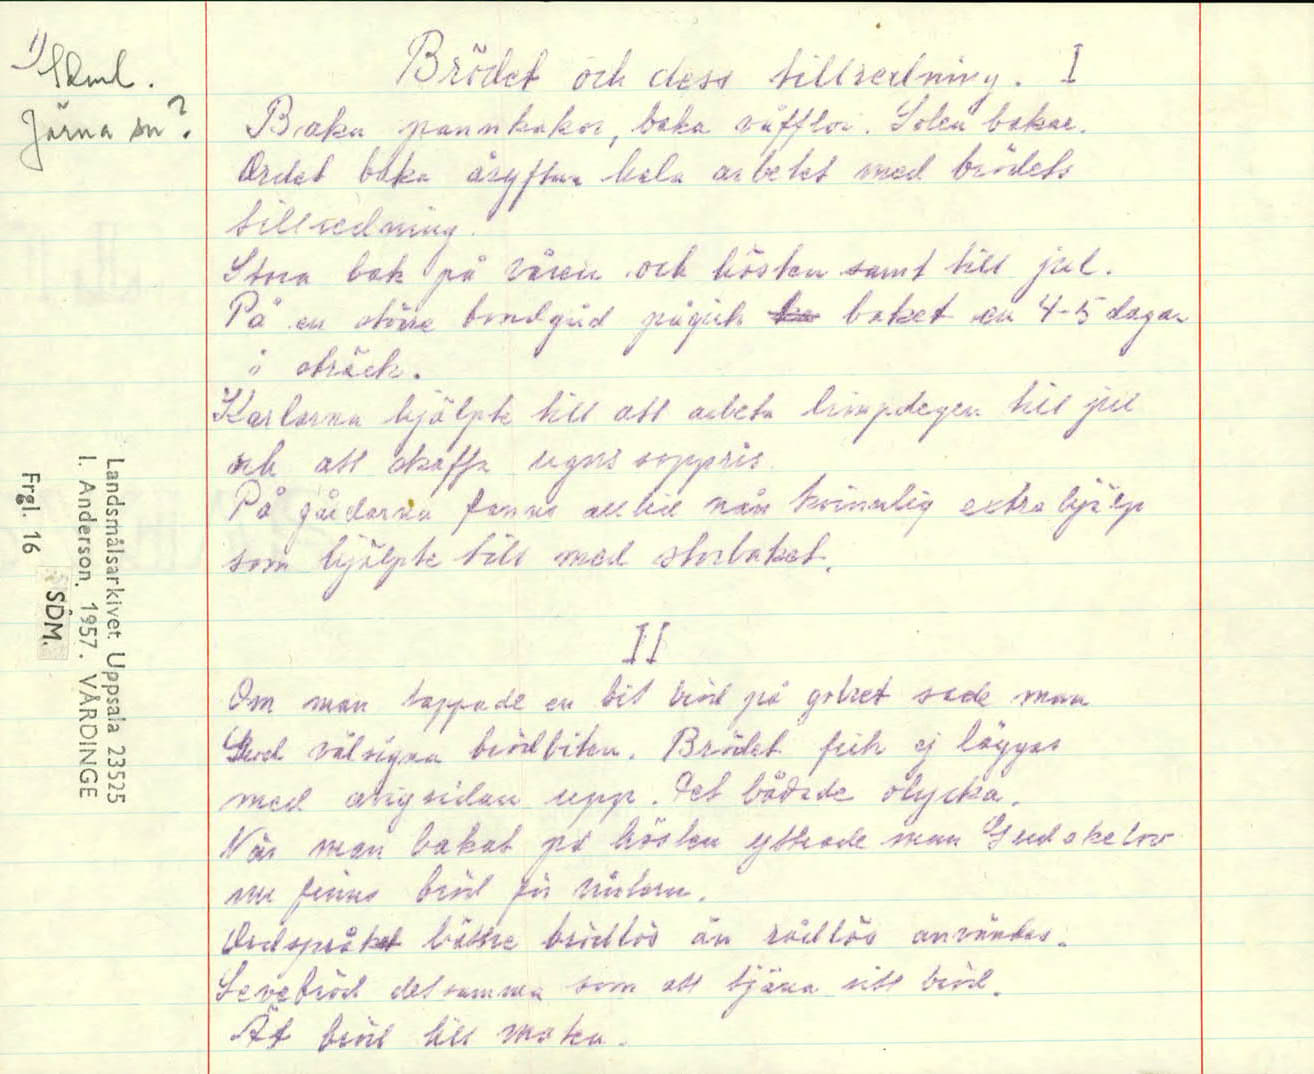 1) Sdml.
Järna sn?
Brödet och dess tillredning. I
Baka pannkakor, baka våfflor. Solen bakar.
Ordet baka åsyftar hela arbetet med brödets
tillredning.
Stora bak på våren och hösten samt till jul.
På en större bondgård pågick baket en 4-5 dagar
i sträck.
Karlarna hjälpte till att arbeta limpdegen till jul
och att skaffa ugns soppris.
På gårdarna fanns alltid nån kvinnlig extra hjälp
som hjälpte till med storbaket.
II
Om man tappade en bit bröd på golvet sade man
Gud välsigna brödbiten. Brödet fick ej läggas
med avigsidan upp. Det bådade olycka.
När man bakat på hösten yttrade man Gudskelov
nu finns bröd för vintern.
Ordspråket bättre brödlös än rådlös användes.
Levebröd detsamma som att tjäna sitt bröd.
Ät bröd till maten.
Landsmålsarkivet Uppsala 23525
I. Anderson. 1957. VÅRDINGE
Frgl. 16 SDM.